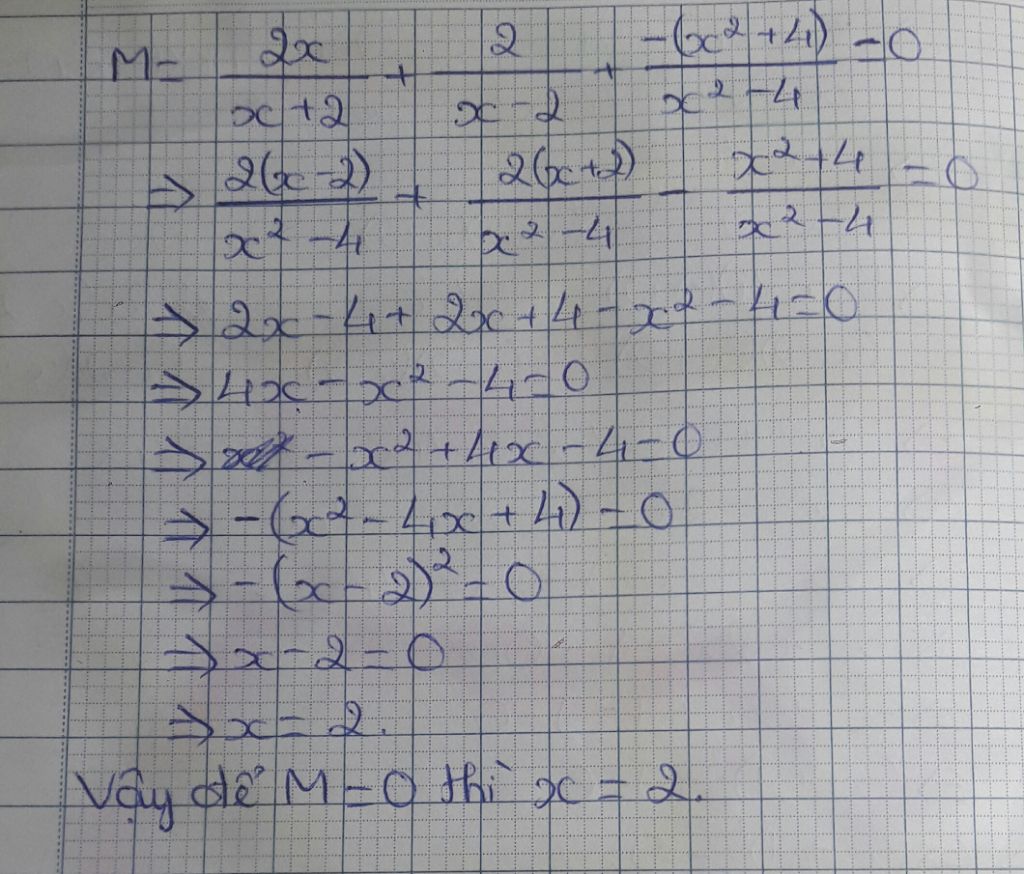 M = 2x/(x+2) + 2/(x-2) + -(x²+4)/(x²-4) = 0
⇒ 2(x-2)/(x²-4) + 2(x+2)/(x²-4) - (x²+4)/(x²-4) = 0
⇒ 2x - 4 + 2x + 4 - x² - 4 = 0
⇒ 4x - x² - 4 = 0
⇒ - x² + 4x - 4 = 0
⇒ -(x² - 4x + 4) = 0
⇒ -(x - 2)² = 0
⇒ x - 2 = 0
⇒ x = 2.
Vậy để M = 0 thì x = 2.